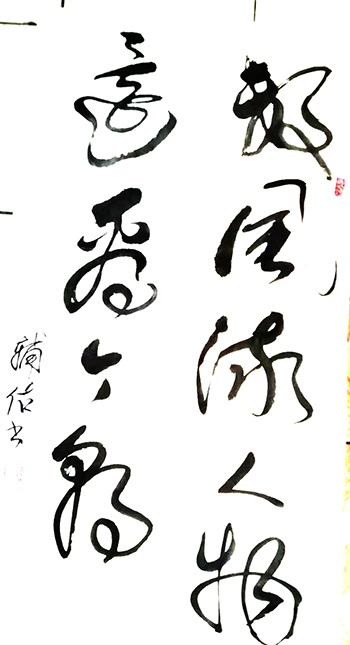 数风流人物
还看今朝
辅佐书